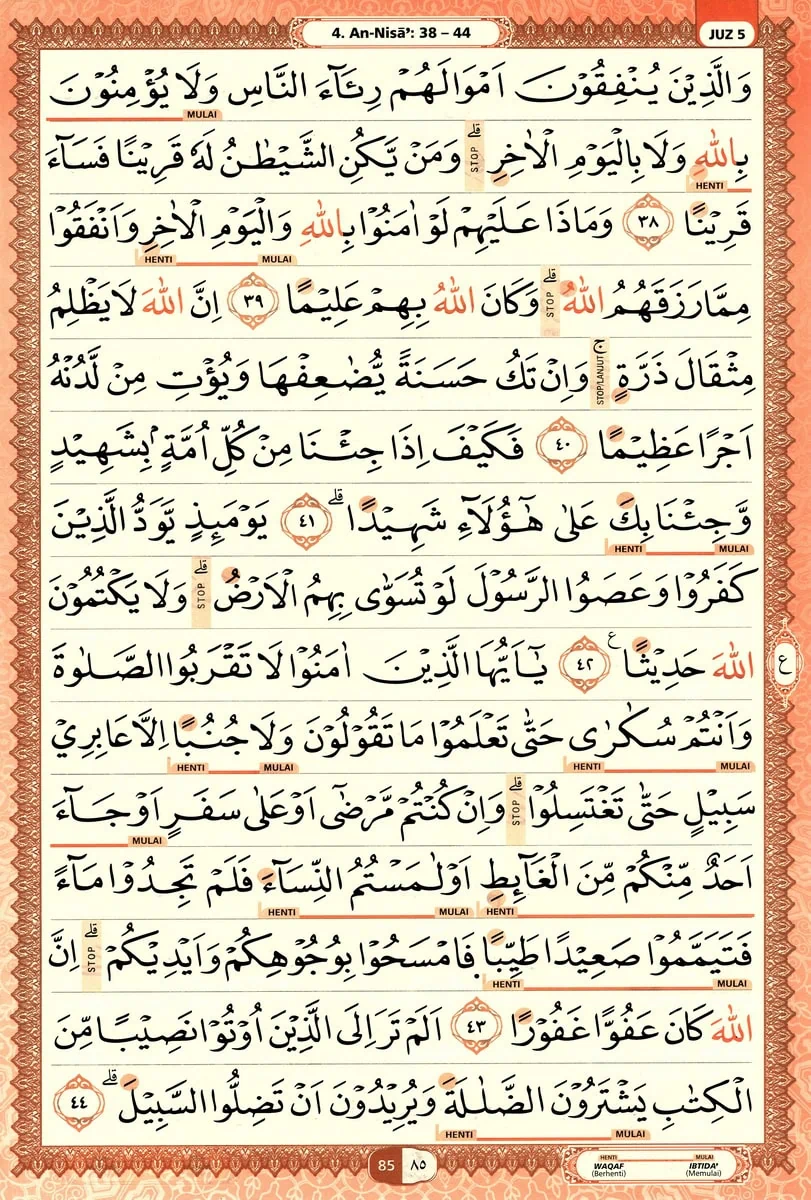 4. An-Nisā’: 38 – 44
JUZ 5
وَالَّذِيْنَ يُنْفِقُوْنَ اَمْوَالَهُمْ رِئَآءَ النَّاسِ وَلَا يُؤْمِنُوْنَ
MULAI
بِاللّٰهِ وَلَا بِالْيَوْمِ الْاٰخِرِ ۗ وَمَنْ يَّكُنِ الشَّيْطٰنُ لَهٗ قَرِيْنًا فَسَآءَ
STOP
HENTI
قَرِيْنًا ٣٨ وَمَاذَا عَلَيْهِمْ لَوْ اٰمَنُوْا بِاللّٰهِ وَالْيَوْمِ الْاٰخِرِ وَاَنْفَقُوْا
HENTI MULAI
مِمَّا رَزَقَهُمُ اللّٰهُ ۗ وَكَانَ اللّٰهُ بِهِمْ عَلِيْمًا ٣٩ اِنَّ اللّٰهَ لَا يَظْلِمُ
STOP
مِثْقَالَ ذَرَّةٍ ۚ وَاِنْ تَكُ حَسَنَةً يُّضٰعِفْهَا وَيُؤْتِ مِنْ لَّدُنْهُ
STOP/LANJUT
اَجْرًا عَظِيْمًا ٤٠ فَكَيْفَ اِذَا جِئْنَا مِنْ كُلِّ اُمَّةٍۢ بِشَهِيْدٍ
وَّجِئْنَا بِكَ عَلٰى هٰٓؤُلَاۤءِ شَهِيْدًاۗ ٤١ يَوْمَىِٕذٍ يَّوَدُّ الَّذِيْنَ
HENTI MULAI
كَفَرُوْا وَعَصَوُا الرَّسُوْلَ لَوْ تُسَوّٰى بِهِمُ الْاَرْضُ ۗ وَلَا يَكْتُمُوْنَ
STOP
اللّٰهَ حَدِيْثًا ࣖ ٤٢ يٰٓاَيُّهَا الَّذِيْنَ اٰمَنُوْا لَا تَقْرَبُوا الصَّلٰوةَ
ع
وَاَنْتُمْ سُكَارٰى حَتّٰى تَعْلَمُوْا مَا تَقُوْلُوْنَ وَلَا جُنُبًا اِلَّا عَابِرِيْ
HENTI MULAI HENTI MULAI
سَبِيْلٍ حَتّٰى تَغْتَسِلُوْا ۗ وَاِنْ كُنْتُمْ مَّرْضٰٓى اَوْ عَلٰى سَفَرٍ اَوْ جَاۤءَ
STOP
MULAI
اَحَدٌ مِّنْكُمْ مِّنَ الْغَاۤىِٕطِ اَوْ لٰمَسْتُمُ النِّسَاۤءَ فَلَمْ تَجِدُوْا مَاۤءً
HENTI MULAI HENTI
فَتَيَمَّمُوْا صَعِيْدًا طَيِّبًا فَامْسَحُوْا بِوُجُوْهِكُمْ وَاَيْدِيْكُمْ ۗ اِنَّ
STOP
HENTI MULAI
اللّٰهَ كَانَ عَفُوًّا غَفُوْرًا ٤٣ اَلَمْ تَرَ اِلَى الَّذِيْنَ اُوْتُوْا نَصِيْبًا مِّنَ
الْكِتٰبِ يَشْتَرُوْنَ الضَّلٰلَةَ وَيُرِيْدُوْنَ اَنْ تَضِلُّوا السَّبِيْلَۗ ٤٤
HENTI MULAI
85 ٨٥
HENTI MULAI
WAQAF IBTIDA’
(Berhenti) (Memulai)